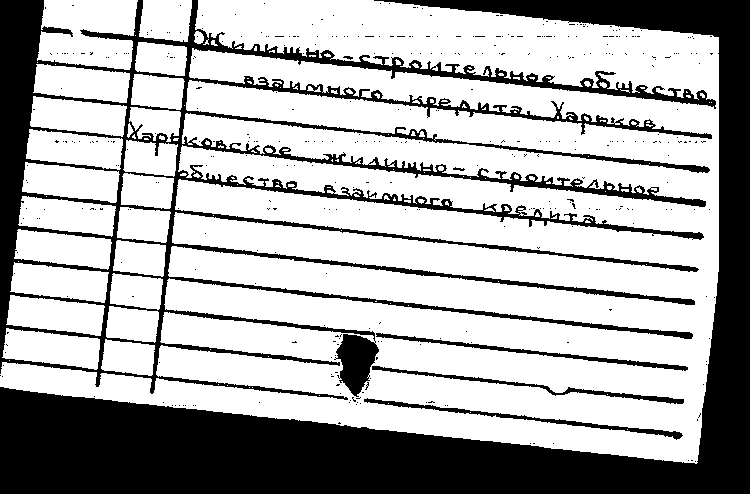 Жилищно-строительное общество
взаимного кредита. Харьков.
см.
Харьковское жилищно-строительное
общество взаимного кредита.